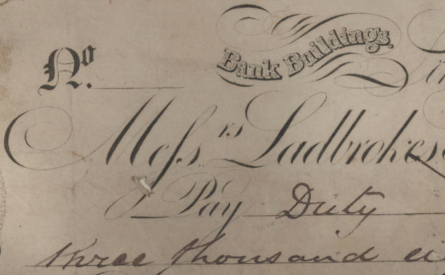 Bank Buildings.
No.
Messrs Ladbrokes
Pay Duty
three thousand